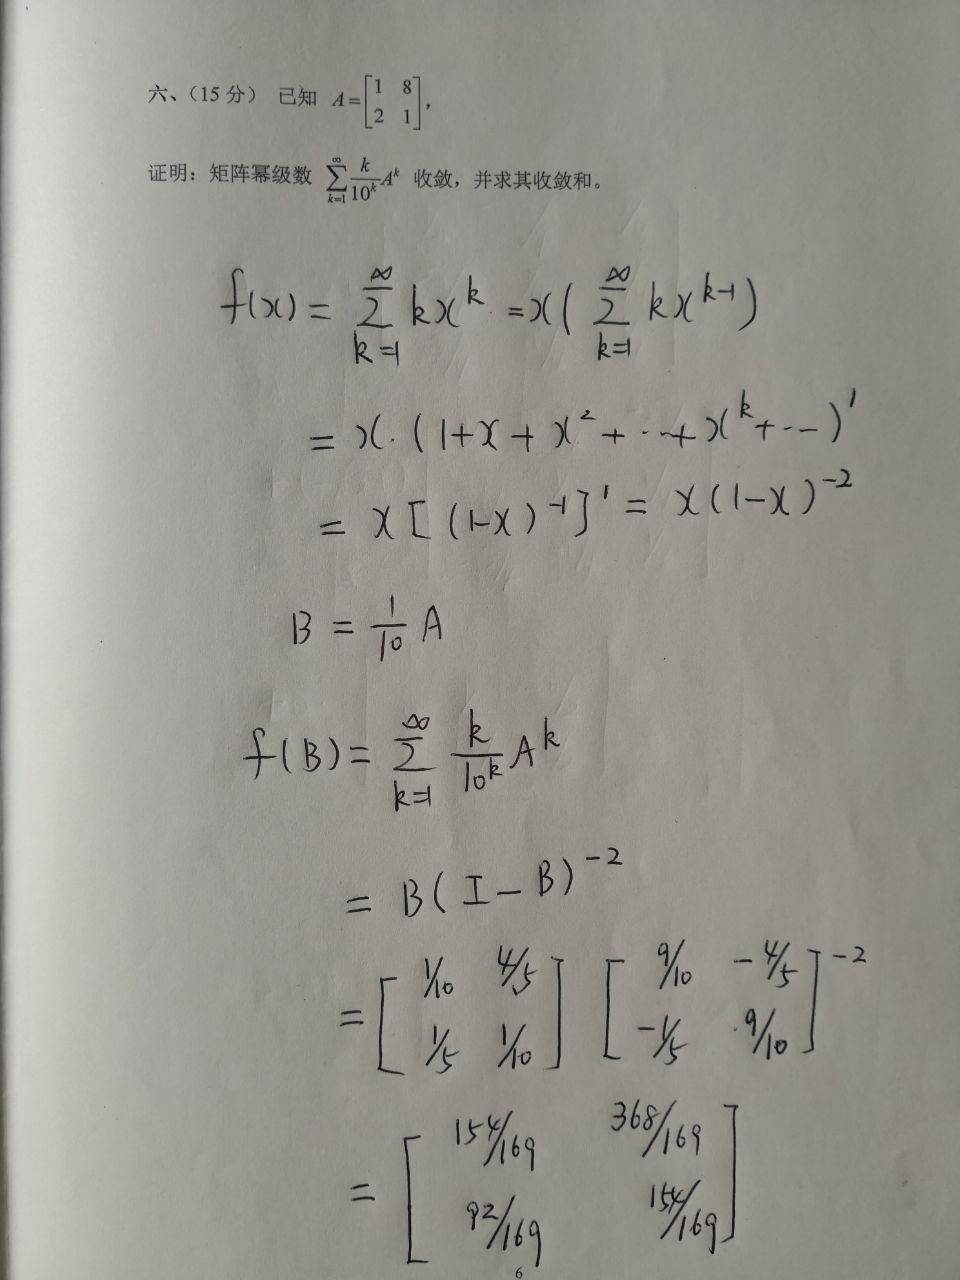 六、（15 分） 已知 A=[1 8; 2 1],
证明：矩阵幂级数 ∑_{k=1}^{∞} k/10^k A^k 收敛，并求其收敛和。
f(x) = ∑_{k=1}^{∞} kx^k = x( ∑_{k=1}^{∞} kx^{k-1} )
= x·(1+x+x^2+···+x^k+···)'
= x[(1-x)^{-1}]' = x(1-x)^{-2}
B = 1/10 A
f(B) = ∑_{k=1}^{∞} k/10^k A^k
= B(I-B)^{-2}
= [1/10 4/5; 1/5 1/10] [9/10 -4/5; -1/5 9/10]^{-2}
= [154/169 368/169; 92/169 154/169]
6